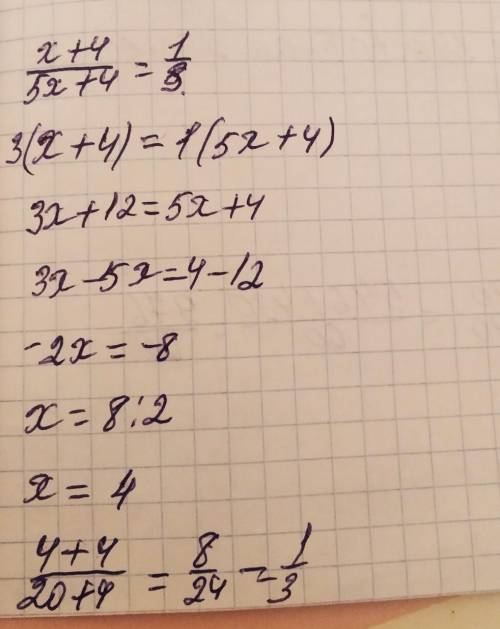 x+4/5x+4 = 1/3
3(x+4) = 1(5x+4)
3x+12=5x+4
3x-5x=4-12
-2x=-8
x=8:2
x=4
4+4/20+4 = 8/24 = 1/3